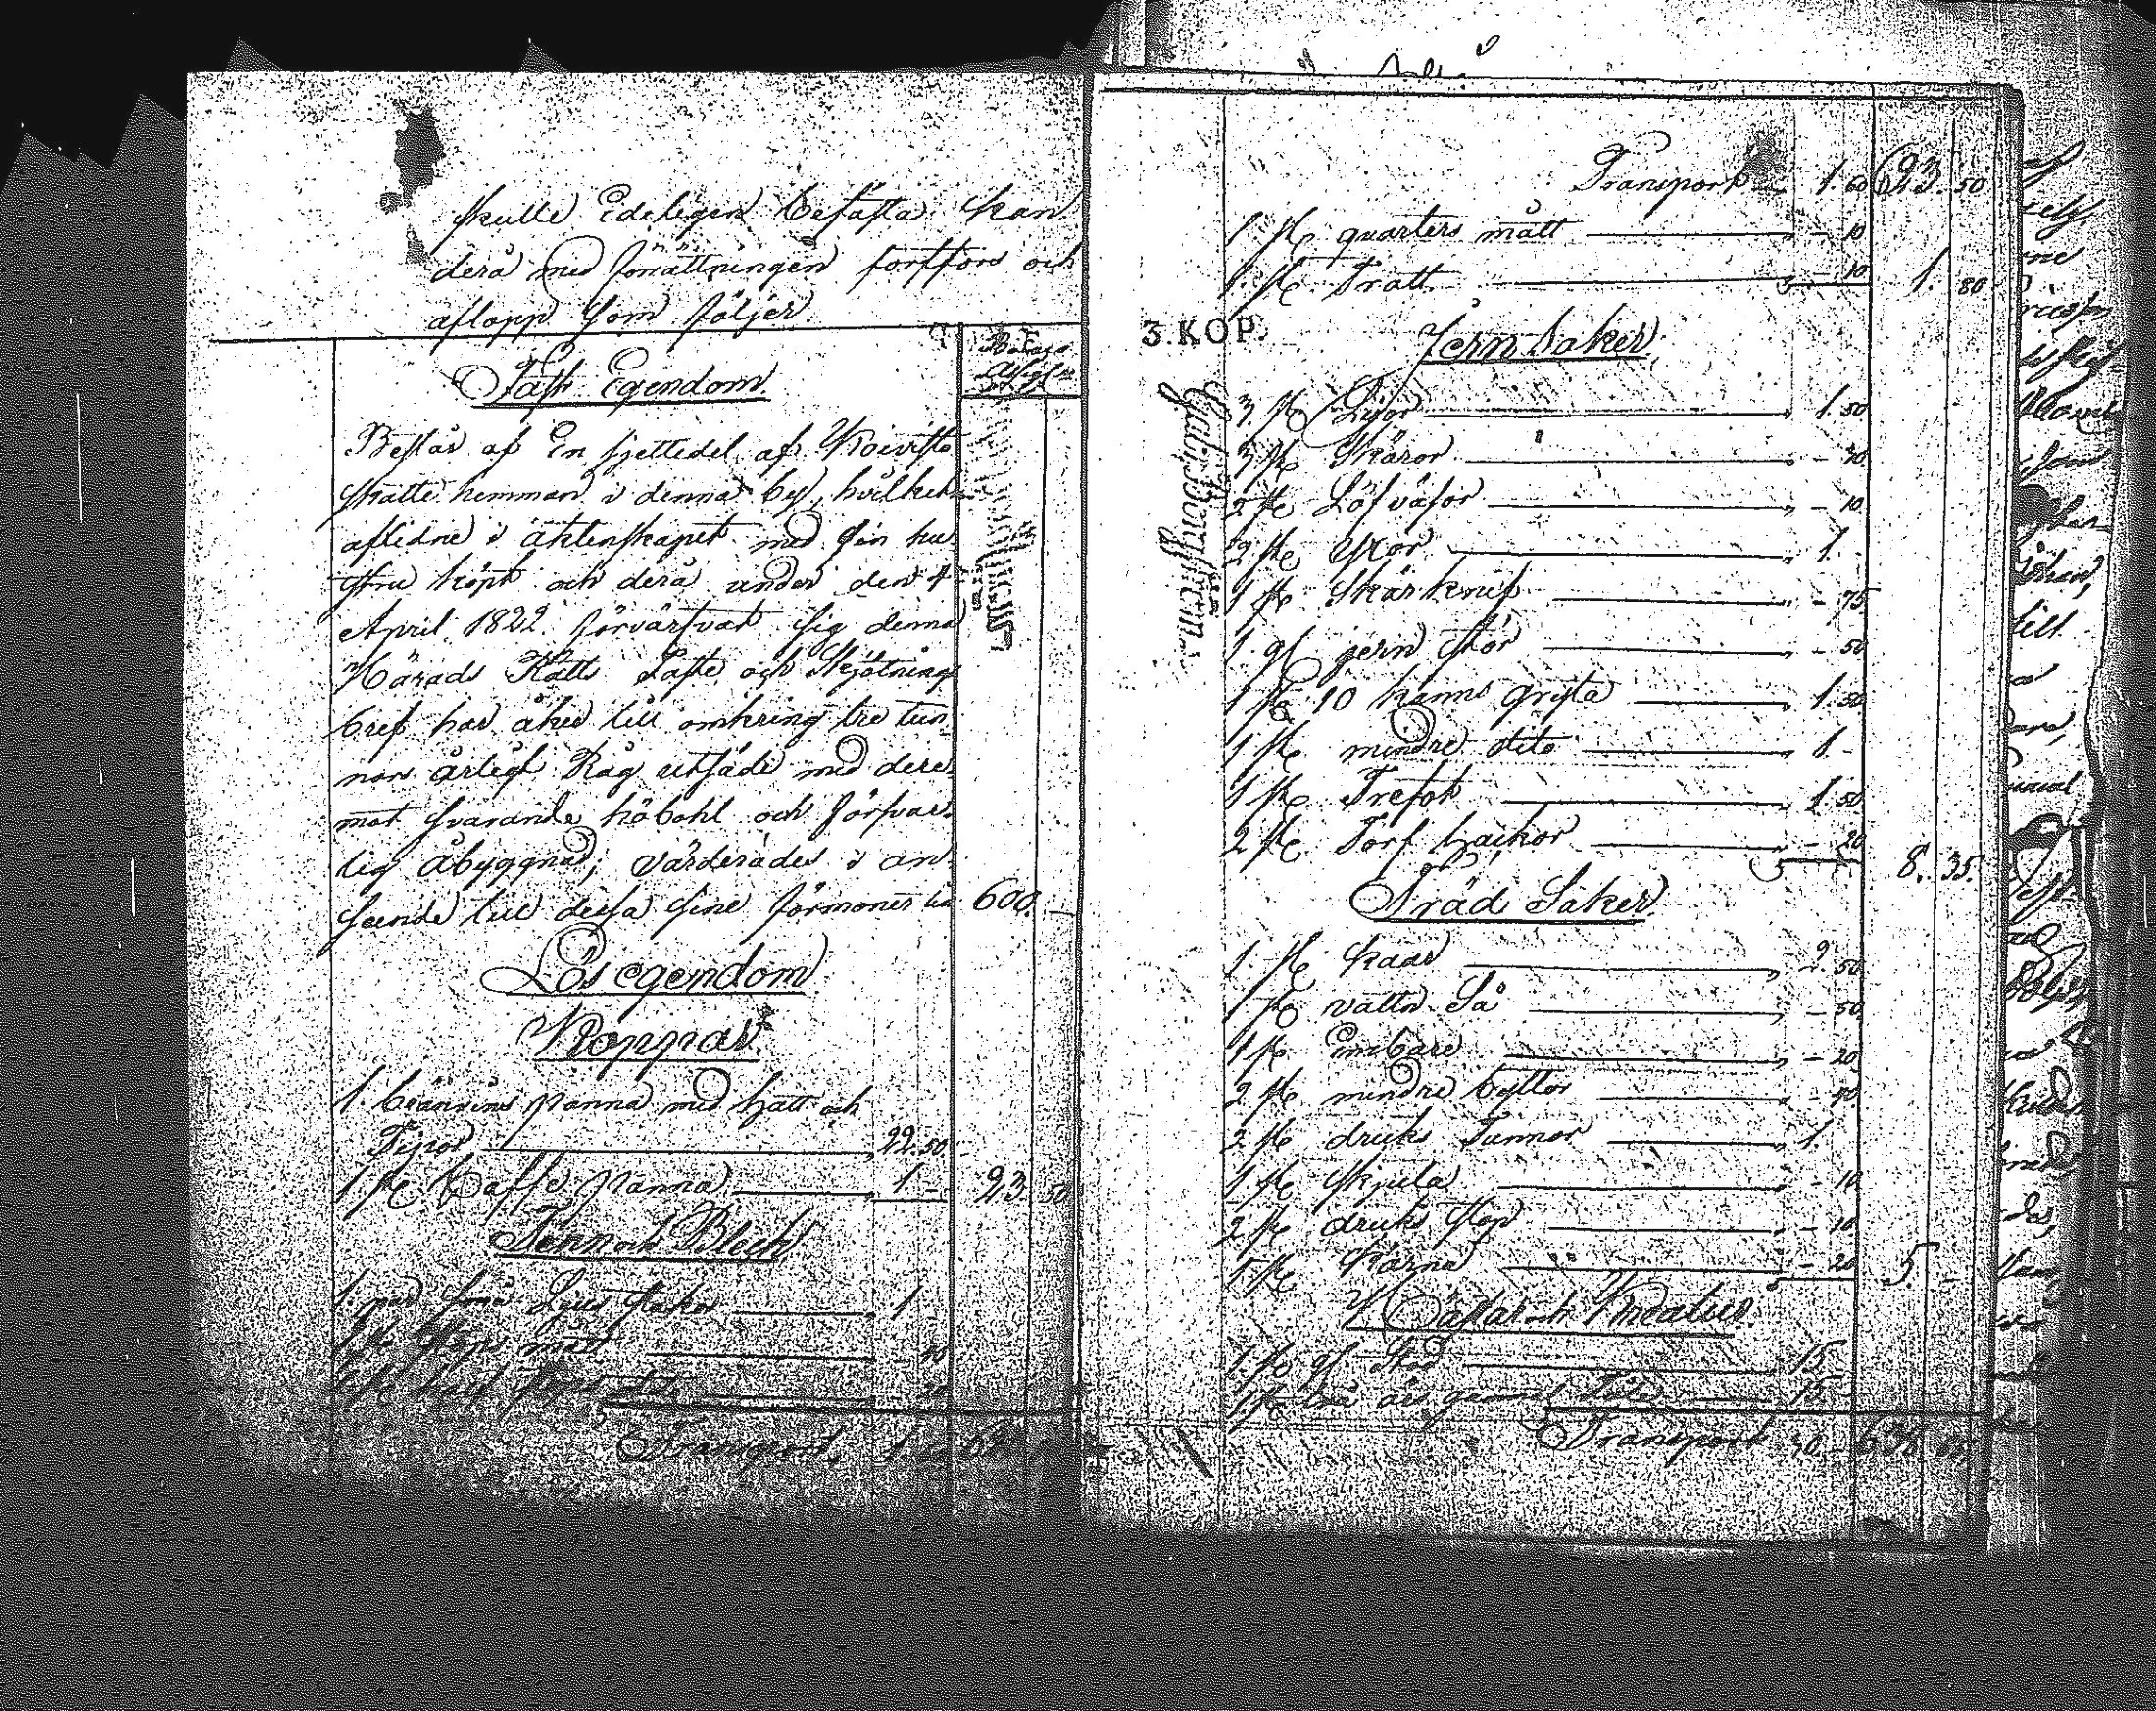 skulle Edeligen befästa kan
derå med förrättningen fortfors och
aflopp som följer.
Fast Egendom.
Består af En sjettedel af Koivisto
skatte hemman i denna by, hvilket
aflidne i äktenskapet med sin hu
stru köpt och derå under den 4
April 1822 förvärfvat sig denna
Härads Rätts Faste och Skjötnings
bref har åker till omkring tre tun
nors årligt Råg utsäde med dere
mot svarande höbohl och försvar
lig åbyggnad, värderades i an
seende till dessa sine förmoner til 600. –
Lös egendom
Koppar
1. bränvins panna med hatt och
Pipor 22. 50
1 st. Caffe panna 1. – 23. 50
Tenn och Bleck
1. par små Ljus stakar 1 –
1 st. stops mått
1 st. half stops dito 20
Transport
Transport 1. 60 623. 50
1 st. quarters mått – 10
1. st. Tratt – 10 1. 80
3. KOP.
Jern Saker
3. st. Lijor 1. 50
3 st. Skäror – 30
2 st. Löf väfor – 10
2 st. Yxor 1. –
1 st. Skär knif – 75
1. st. jern stör – 50
1 st. 10 kanns gryta 1. 50
1 st. mindre dito 1 –
1 st. Trefot 1. 50
2 st. Torf hackor – 20 8. 35.
Träd Saker
1. st. kaar 2. 50
1 st. vattu Så – 50
1 st. Embare – 20
2 st. mindre byttor – 40
2. st. dricks Tunnor 1. –
1 st. skjula – 10
2 st. dricks stop – 10
1 st. kärna – 20 5 –
Hästar och Kreatur
1. st. gl. Sto 15 –
1 st. två års gammal Föl 15 –
Transport 30 – 638. 65